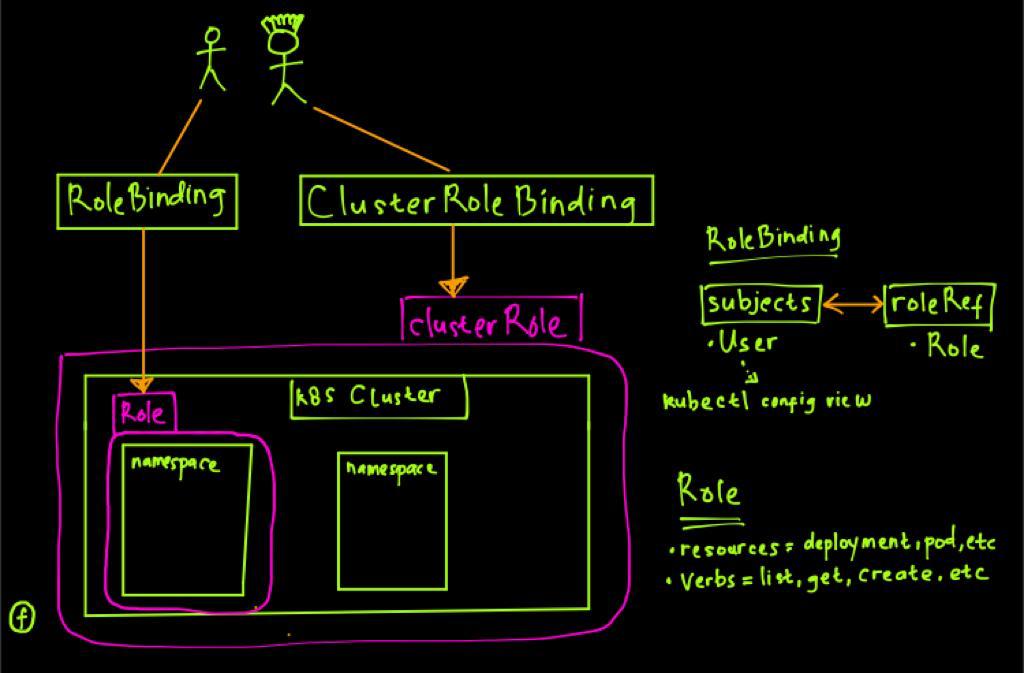 RoleBinding
ClusterRoleBinding
clusterRole
Role
k8s Cluster
namespace
namespace
RoleBinding
subjects
roleRef
• User
• Role
kubectl config view
Role
• resources = deployment, pod, etc
• Verbs = list, get, create. etc
f